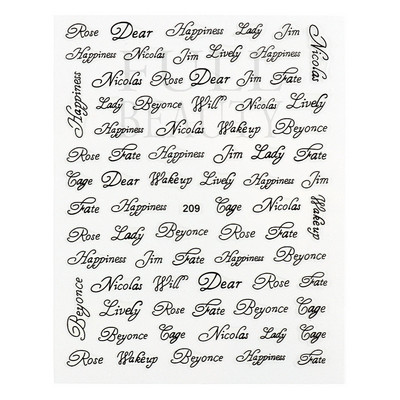 Rose Dear Happiness Lady Jim
Happiness Nicolas Jim Lively Happiness
Nicolas
Nicolas Rose Dear Jim Fate
Happiness
Lady Beyonce Will Nicolas Lively
Happiness Nicolas Wakeup Beyonce
Rose Fate Happiness Jim Lady Fate
Cage Dear Wakeup Lively Happiness Jim
Fate Happiness 209 Cage Nicolas
Wakeup
Rose Lady Beyonce Rose Fate
Happiness Jim Fate Happiness Jim
Nicolas Will Dear Rose Fate
Beyonce
Lively Rose Fate Beyonce Cage
Beyonce Cage Nicolas Lady Cage
Rose Wakeup Beyonce Happiness Fate
FULL
BEAUTY